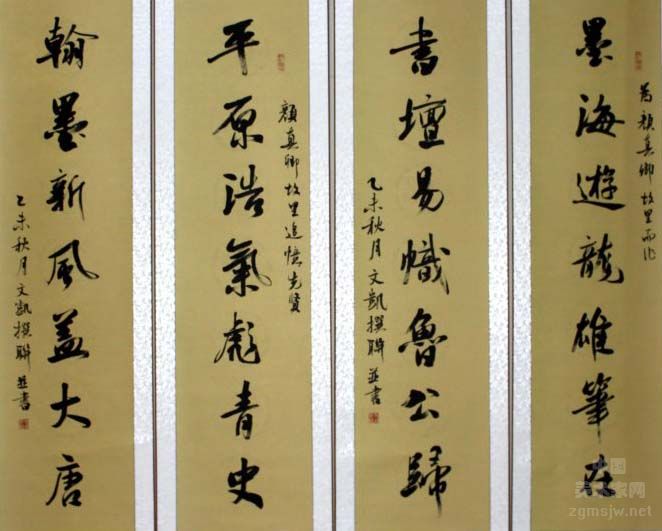 墨海遊龍雄筆在
為顏真卿故里而作
書壇易幟魯公歸
乙未秋月文凱撰聯並書
平原浩氣彪青史
顏真卿故里追憶先賢
翰墨新風蓋大唐
乙未秋月文凱撰聯並書
中国
美术家网
zgmsjw.net